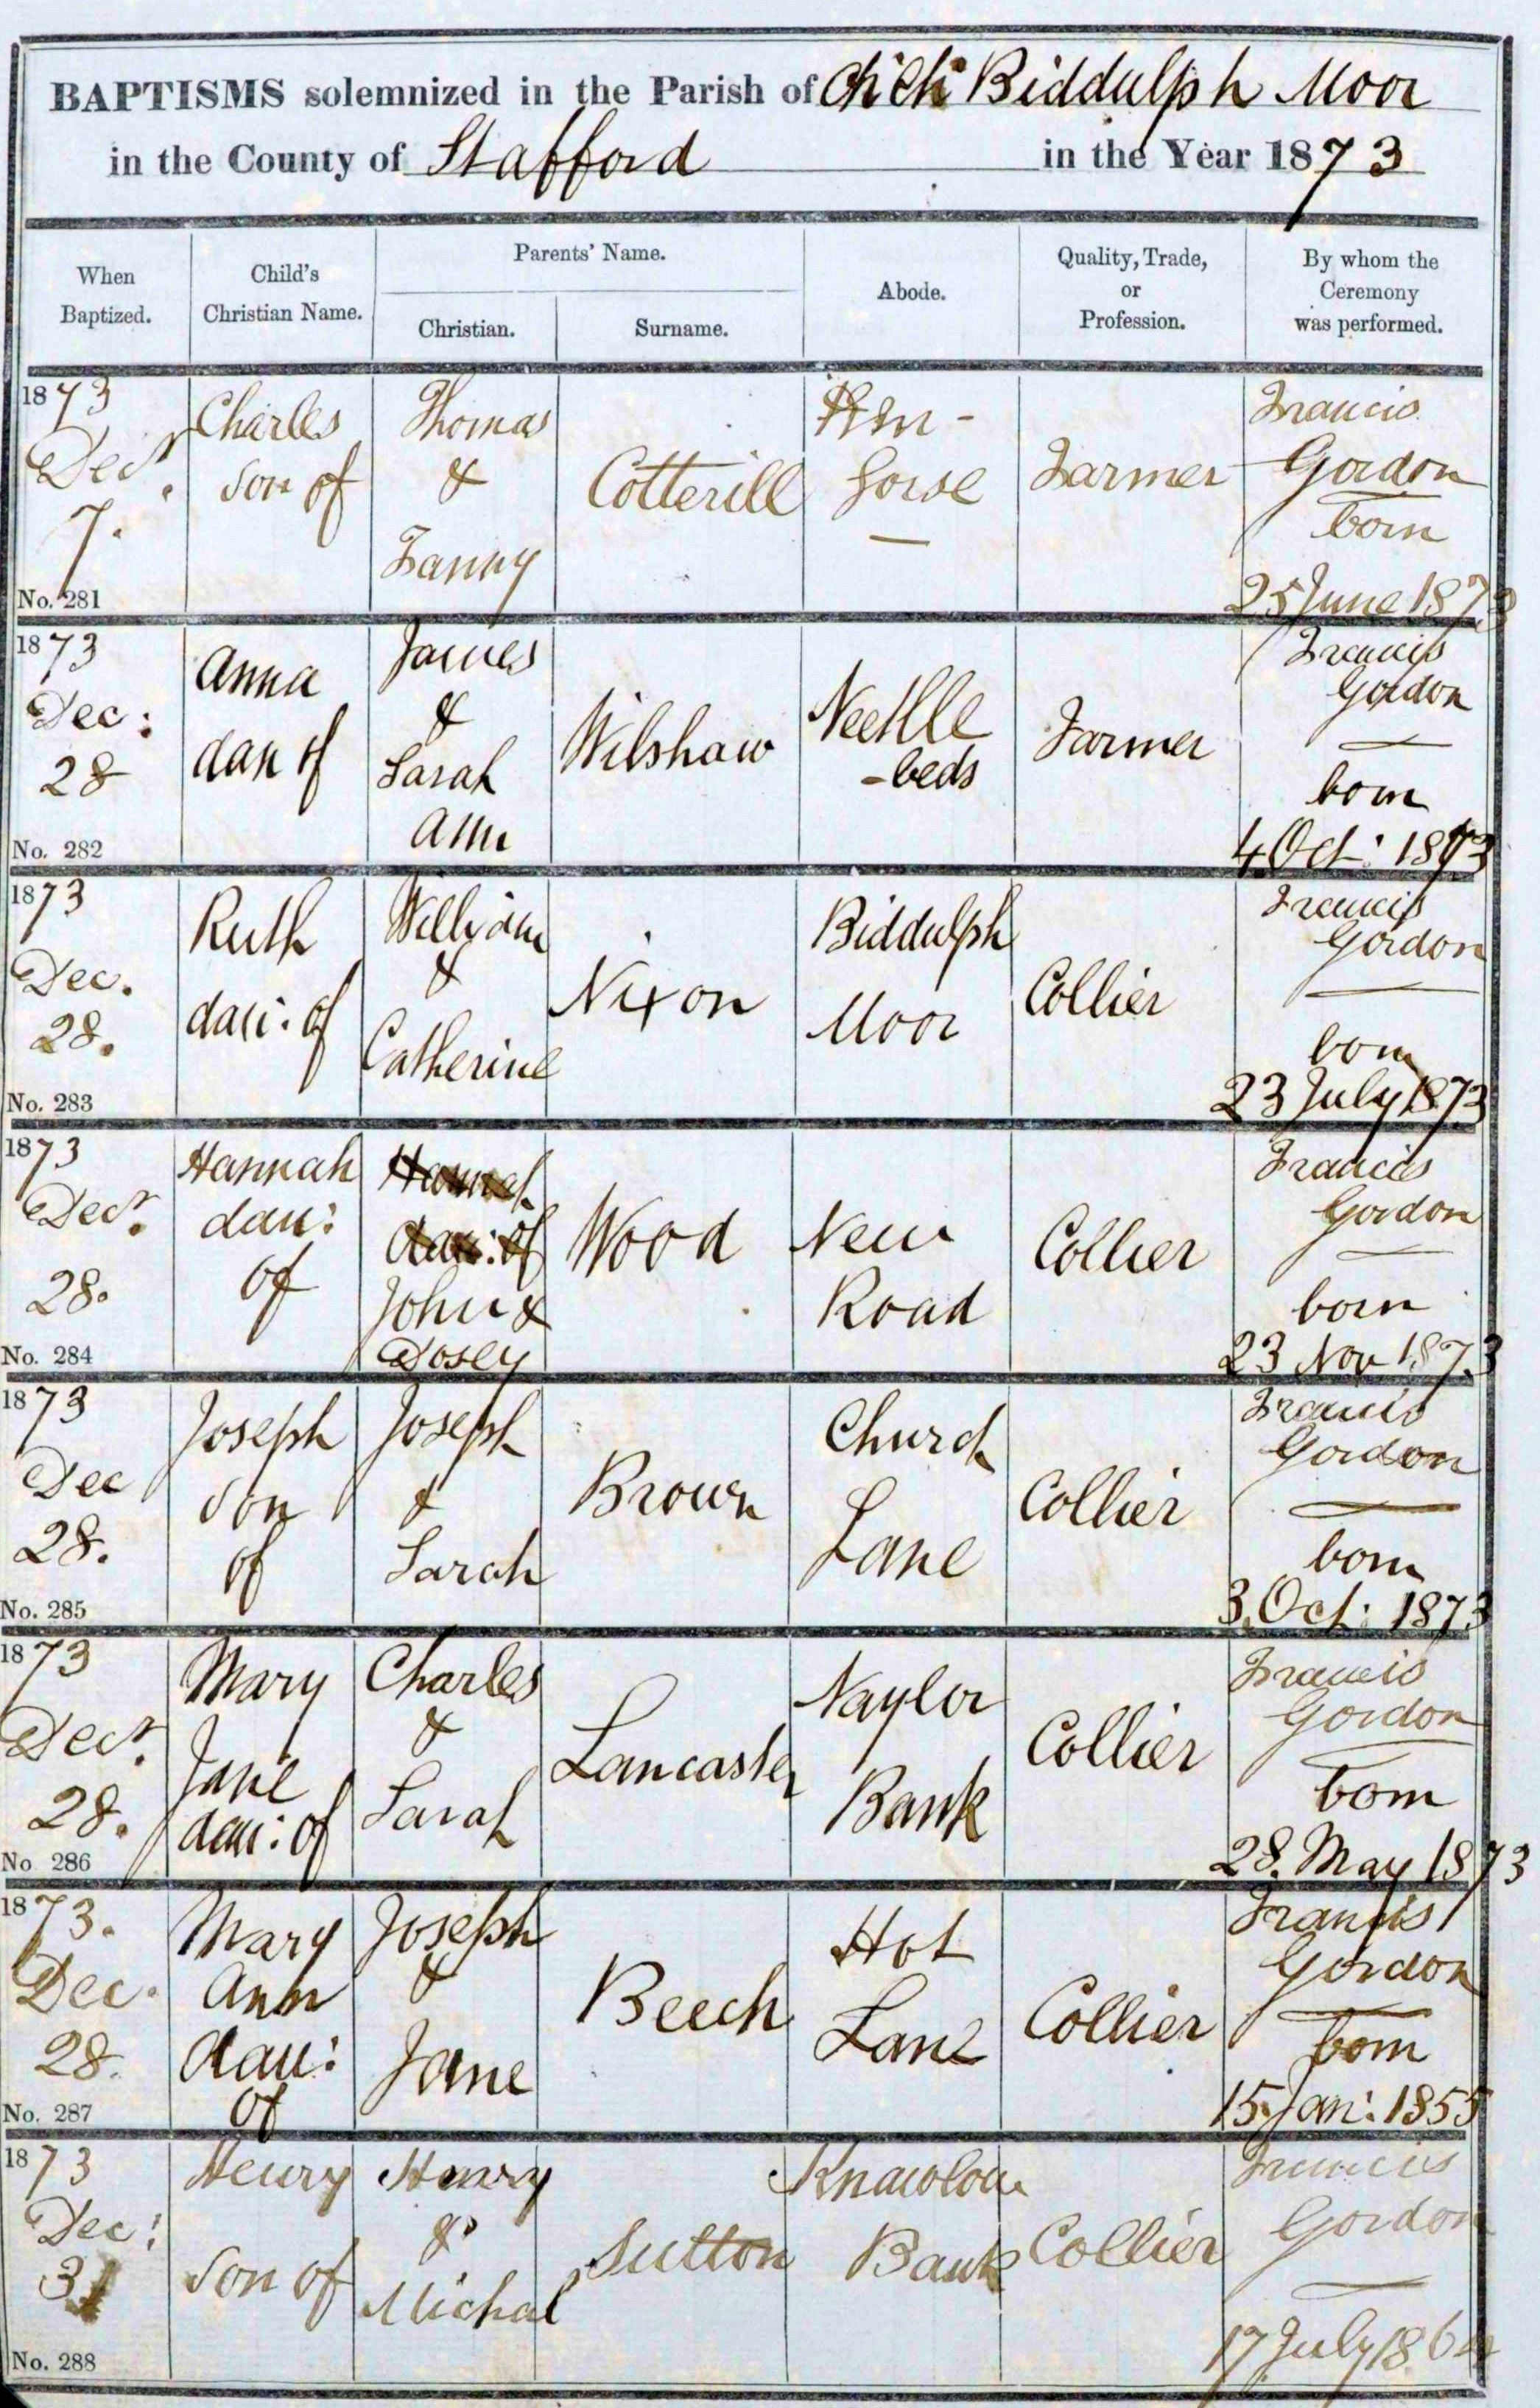 BAPTISMS solemnized in the Parish of Ch: Ch: Biddulph Moor
in the County of Stafford in the Year 1873
When Baptized.
Child's Christian Name.
Parents' Name.
Christian.
Surname.
Abode.
Quality, Trade, or Profession.
By whom the Ceremony was performed.
1873
Decr.
7.
No. 281
Charles
son of
Thomas
&
Fanny
Cotterill
Gorse
Farmer
Francis
Gordon
born
25 June 1873
1873
Dec:
28
No. 282
Anna
dau of
James
&
Sarah
Ann
Wilshaw
Neetlle
-beds
Farmer
Francis
Gordon
born
4 Oct: 1873
1873
Dec.
28.
No. 283
Ruth
dau: of
William
&
Catherine
Nixon
Biddulph
Moor
Collier
Francis
Gordon
born
23 July 1873
1873
Decr.
28.
No. 284
Hannah
dau:
of
Hannah
dau: of
John &
Dosey
Wood
New
Road
Collier
Francis
Gordon
born
23 Nov 1873
1873
Dec
28.
No. 285
Joseph
son
of
Joseph
&
Sarah
Brown
Church
Lane
Collier
Francis
Gordon
born
3. Oct: 1873
1873
Decr.
28.
No 286
Mary
Jane
dau: of
Charles
&
Sarah
Lancaster
Naylor
Bank
Collier
Francis
Gordon
born
28. May 1873
1873.
Dec.
28.
No. 287
Mary
Ann
dau:
of
Joseph
&
Jane
Beech
Hot
Lane
Collier
Francis
Gordon
born
15. Jan: 1855
1873
Dec:
31
No. 288
Henry
son of
Henry
&
Michal
Sutton
Bank
Collier
Francis
Gordon
17 July 1864